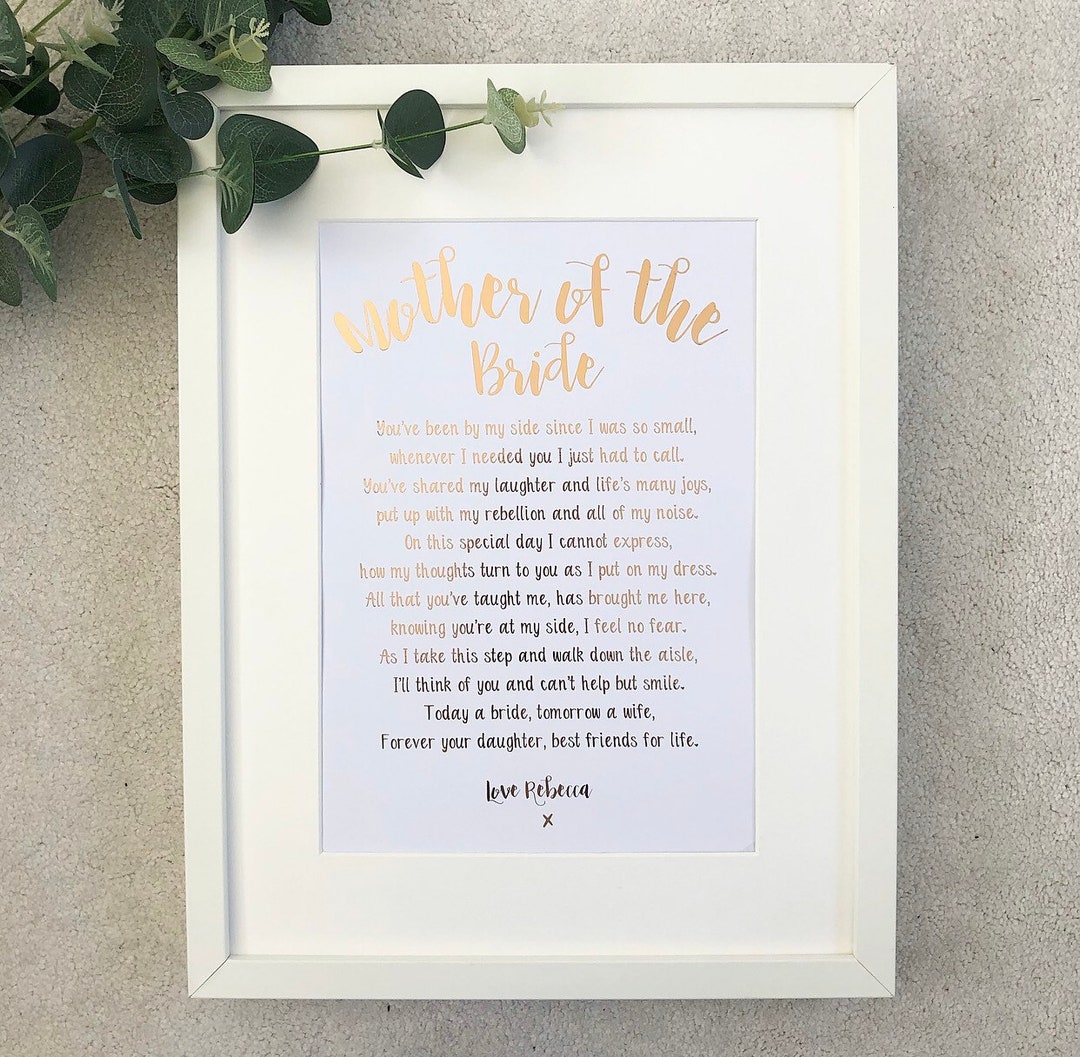 Mother of the
Bride
You've been by my side since I was so small,
whenever I needed you I just had to call.
You've shared my laughter and life's many joys,
put up with my rebellion and all of my noise.
On this special day I cannot express,
how my thoughts turn to you as I put on my dress.
All that you've taught me, has brought me here,
knowing you're at my side, I feel no fear.
As I take this step and walk down the aisle,
I'll think of you and can't help but smile.
Today a bride, tomorrow a wife,
Forever your daughter, best friends for life.
Love Rebecca
x